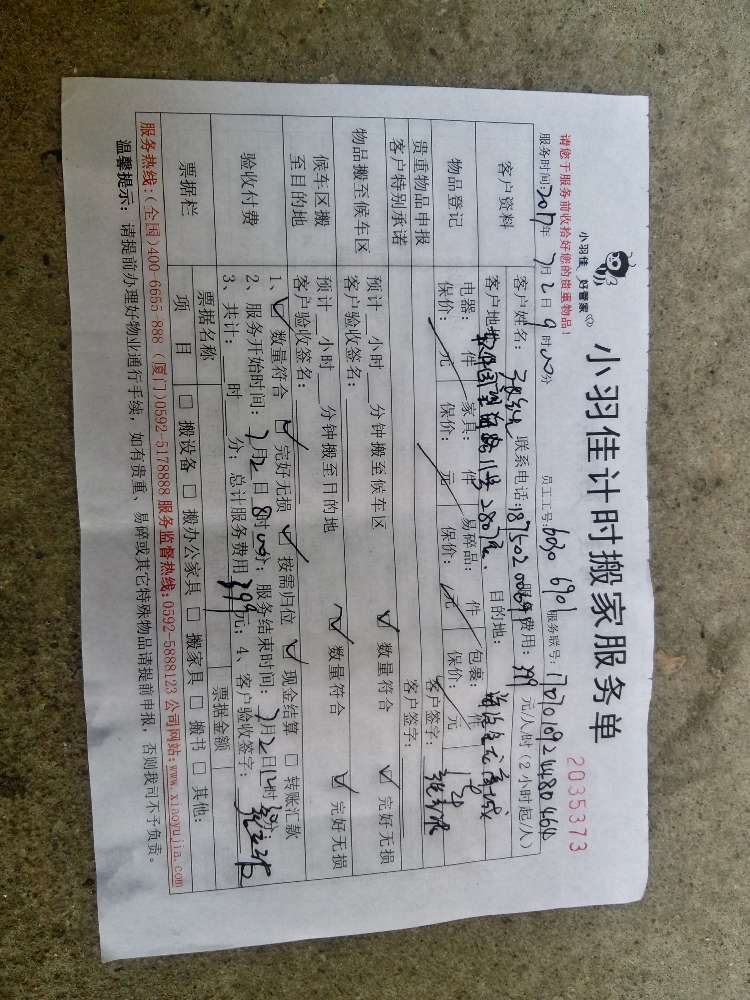 小羽佳 好管家
小羽佳计时搬家服务单
2035373
请您于服务前收拾好您的贵重物品!
服务时间:2017年7月2日9时00分 员工工号:6030 6901 服务联号:
客户资料 客户姓名: 联系电话: 服务费用:399元/小时(2小时起/人)
客户地址: 目的地:
物品登记 电器: 件 家具: 件 易碎品: 件 包裹: 件
保价: 元 保价: 元 保价: 元 保价: 元
贵重物品申报 客户签字:
客户特别承诺 客户签字:
物品搬至候车区 预计 小时 分钟搬至候车区 ✓ 数量符合 ✓ 完好无损
客户验收签名:
候车区搬至目的地 预计 小时 分钟搬至目的地 ✓ 数量符合 ✓ 完好无损
客户验收签名:
验收付费 1、✓ 数量符合 ✓ 完好无损 ✓ 按需归位 ✓ 现金结算 □ 转账汇款
2、服务开始时间:7月2日8时00分;服务结束时间:7月2日12时 分;
3、共计: 时 分;总计服务费用399元;4、客户验收签字:
票据栏 票据名称 票据金额
项目 □ 搬设备 □ 搬办公家具 □ 搬家具 □ 搬书 □ 其他:
服务热线:(全国)400-6655-888 (厦门)0592-5178888 服务监督热线:0592-5888123 公司网站:www.xiaoyujia.com
温馨提示:请提前办理好物业通行手续,如有贵重、易碎或其它特殊物品请提前申报,否则我司不予负责。